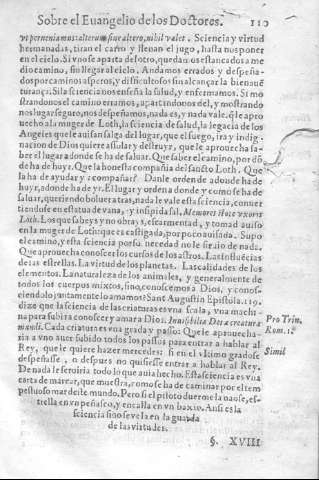 Sobre el Euangelio de los Doctores. 110
vt permeniamus: alterum sine altero, nihil valet. Sciencia y virtud
hermanadas, tiran el carro y llenan el jugo, hasta nos poner
en el cielo. Si vno se aparta del otro, quedamos estancados a me
dio camino, sin llegar al cielo. Andamos errados y despeña-
dos por caminos asperos, y dificultosos sin alcançar la bienauē
turança. Si la sciencia nos enseña la salud, y enfermamos. Si mo
strandonos el camino erramos, apartandonos del, y mostrando
nos lugar seguro, nos despeñamos, nada es, y nada vale. q̃ le apro
uecho a la muger de Loth, la sciencia de salud, la legacia de los
Angeles que le auisan salga del lugar, que el fuego, ira y indig-
nacion de Dios quiere assolar y destruyr, que le aprouecha sa-
ber el lugar a donde se ha de saluar. Que saber el camino, por dō
de ha de huyr. Que la honesta compañia del sancto Loth. Que
la ha de ayudar y acompañar? Danle orden de adonde ha de
huyr, adonde ha de yr. El lugar y orden a donde y como se ha de
saluar, queriendo boluer atras, nada le vale esta sciencia, conuer
tiendose en estatua de vana, y insipida sal. Memores estote vxoris
Loth. Los que sabeys y no obrays, escarmentad, y tomad auiso
en la muger de Loth: que es castigada, por poco auisada. Supo
el camino, y esta sciencia por su necedad no le siruio de nada.
Que aprouecha conoscer los cursos de los astros. Las influēcias
de las estrellas. La virtud de los planetas. Las calidades de los
elementos. La naturaleza de los animales, y generalmente de
todos los cuerpos mixtos, sino conoscemos a Dios, y conos-
ciendolo juntamente lo amamos? Sant Augustin Epistola. 119.
dize que la sciencia de las criaturas es vna scala, y vna machi-
na para subir a conoscer y amar a Dios. Inuisibilia Dei a creatura
mundi. Cada criatura es vna grada y passo: Que le aprouecha-
ria a vno auer subido todos los passos para entrar a hablar al
Rey, que le quiere hazer mercedes: si en el vltimo grado se
despeñasse, o despues no quisiesse entrar a hablar al Rey.
De nada le seruiria todo lo que auia hecho. Esta sciencia es vna
carta de marear, que muestra, como se ha de caminar por el tem
pestuoso mar deste mundo. Pero si el piloto duerme la naue, es-
trella en vn peñasco, y encalla en vn baxio. Ansi es la
sciencia sino se vela en la guarda
de las virtudes.
Pro Trin.
Rom. 1.
Simil
§. XVIII